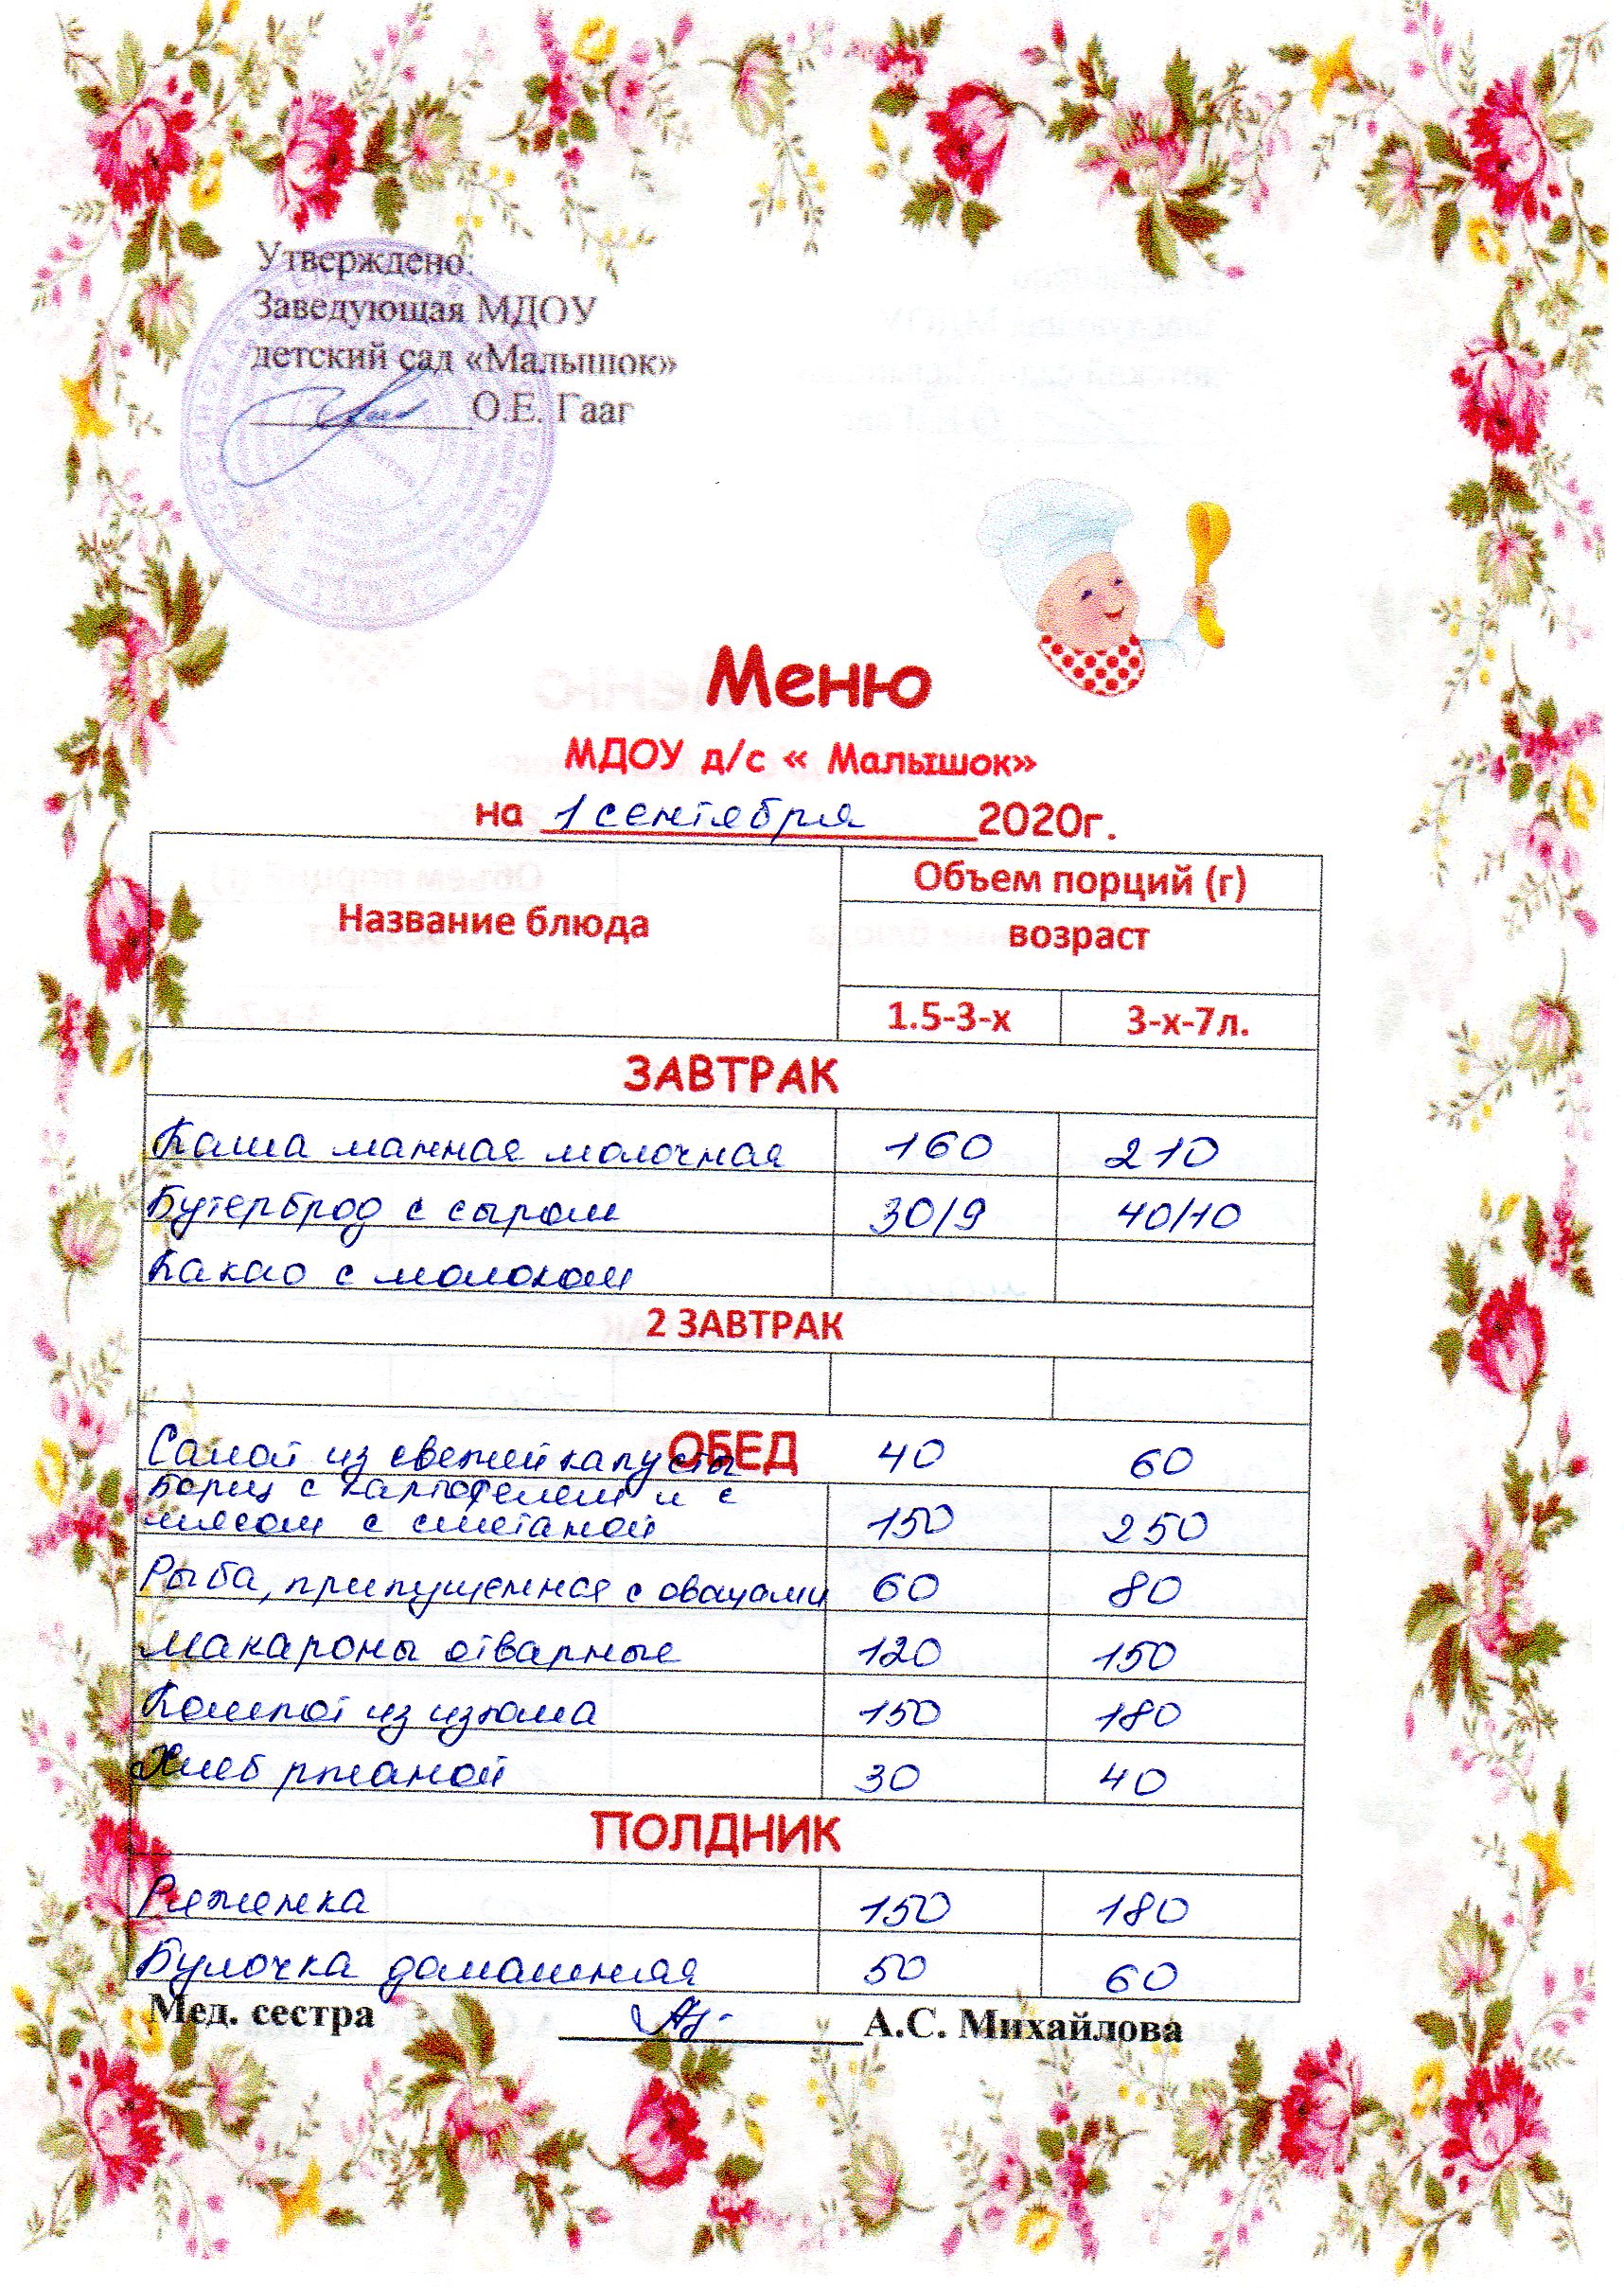 Утверждено:
Заведующая МДОУ
детский сад «Малышок»
О.Е. Гааг
Меню
МДОУ д/с « Малышок»
на 1 сентября 2020г.
Название блюда
Объем порций (г)
возраст
1.5-3-х 3-х-7л.
ЗАВТРАК
Каша манная молочная 160 210
Бутерброд с сыром 30/9 40/10
Какао с молоком
2 ЗАВТРАК
ОБЕД
Салат из свежей капусты 40 60
Борщ с картофелем и с
мясом с сметаной 150 250
Рыба, припущенная с овощами 60 80
Макароны отварные 120 150
Компот из изюма 150 180
Хлеб ржаной 30 40
ПОЛДНИК
Ряженка 150 180
Булочка домашняя 50 60
Мед. сестра А.С. Михайлова